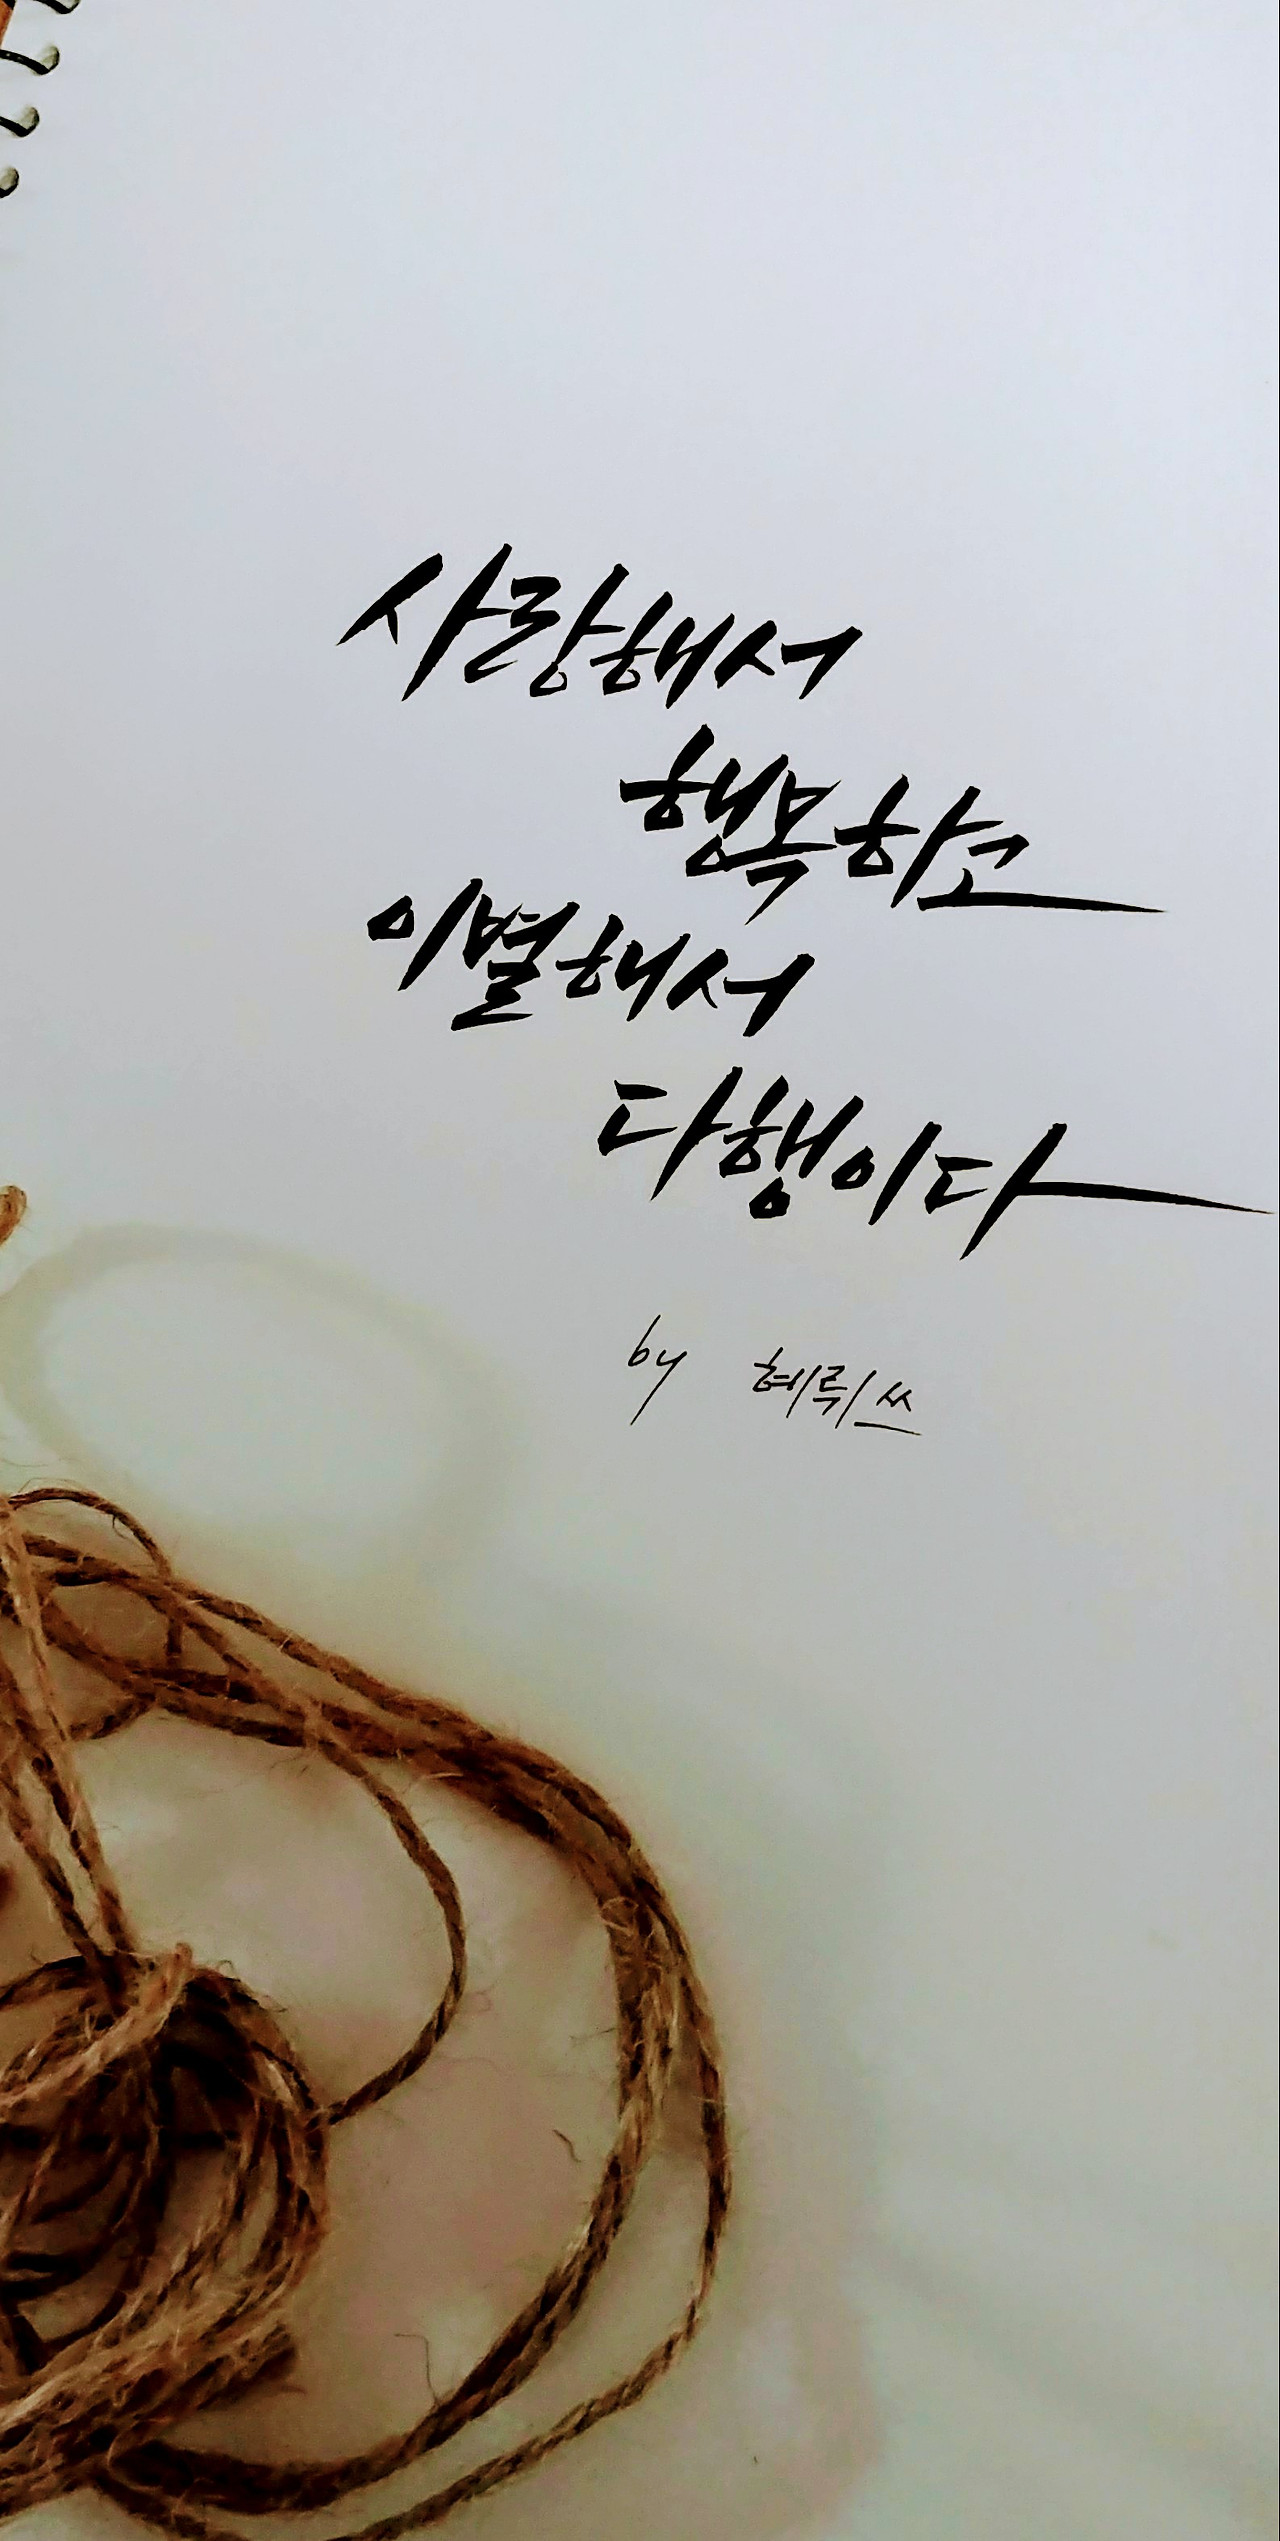 사랑해서
행복하고
이별해서
다행이다
by 혜뤼쓰